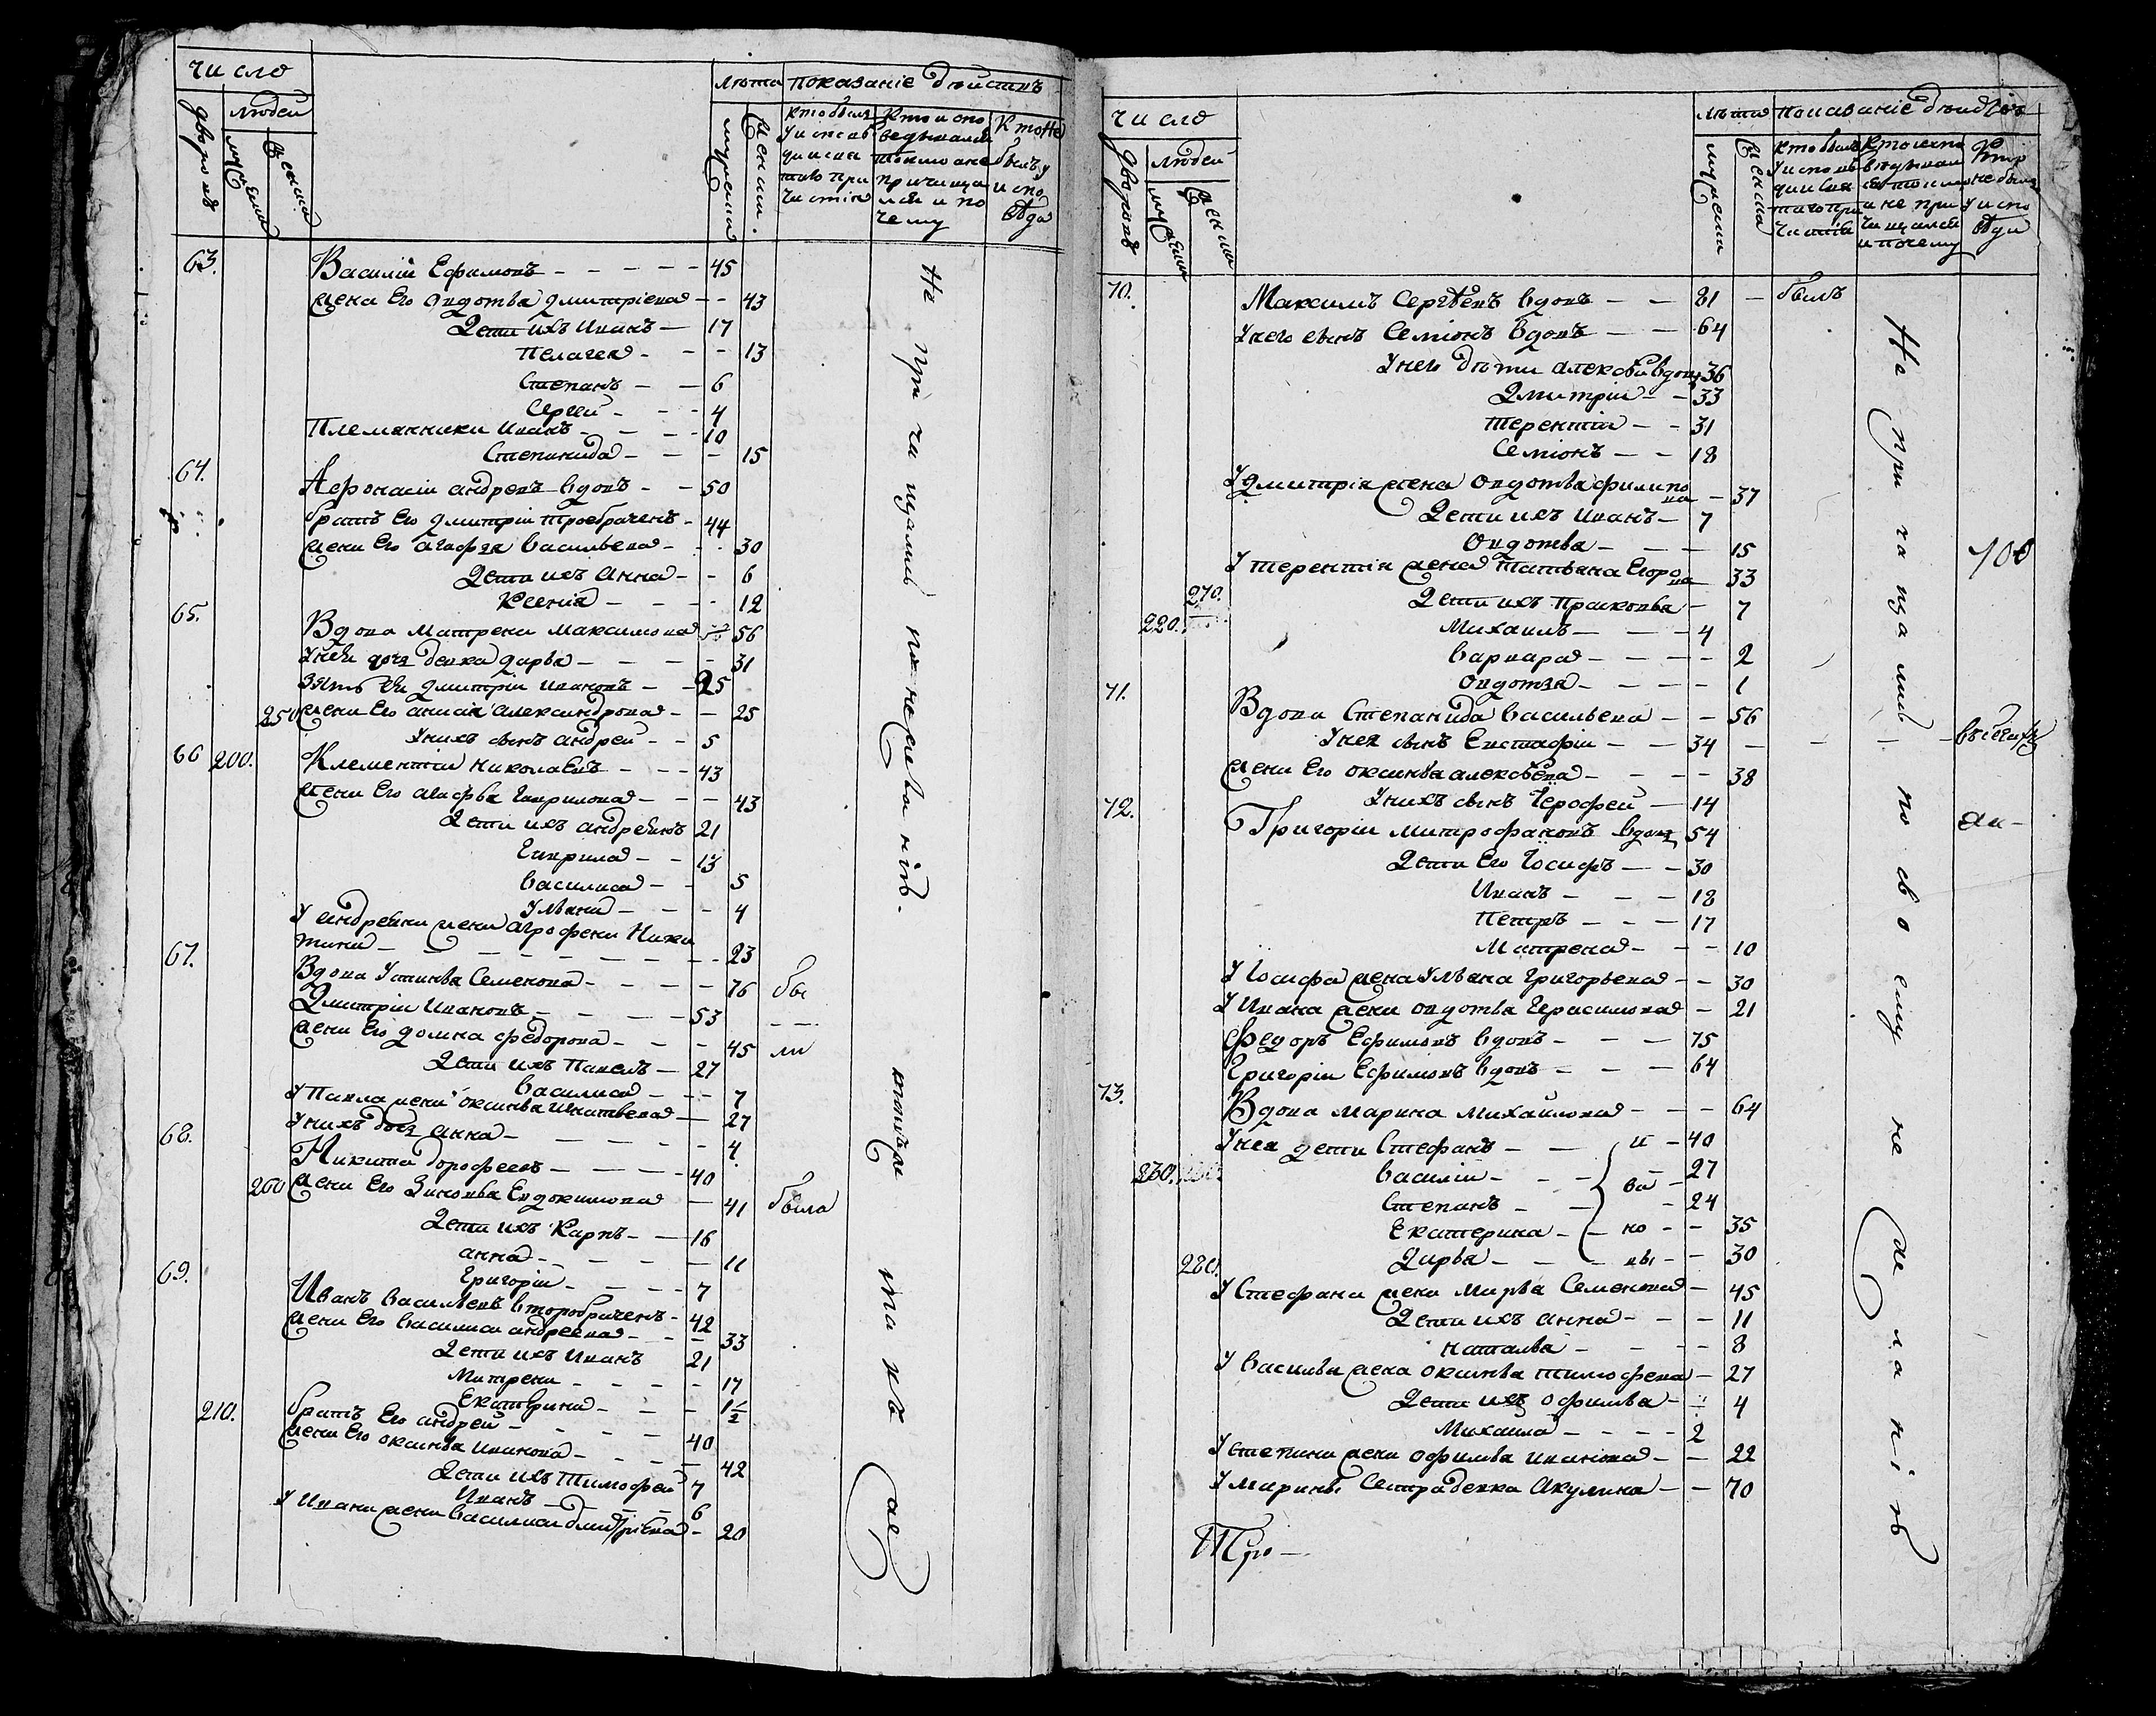 число
лѣта показаніе дѣйствъ
дворовъ
людей
мужеска
женска
мужеска
женска
кто былъ у исповѣди и святаго причастія
кто исповѣдывался токмо а не причащался и почему
кто не былъ у исповѣди
63. Василій Ефимовъ - - - - - 45
жена Его Овдотья Дмитріева - - 43
Дети ихъ Иванъ - 17
Пелагея - - - 13
Степанъ - - 6
Сергей - - - 4
Племянники Иванъ - - - 10
Степанида - - - 15
64. Афонасій андреевъ вдовъ - - 50
братъ Его Дмитрій троебраченъ - 44
жена Его агафья Васильева - - - 30
Дети ихъ Анна - - 6
Ксенія - - - - 12
65. Вдова Матрена Максимова 56
У нея дочь девка Дарья - - - - 31
зять Ея Дмитрій Ивановъ - - 25
250 жена Его анисія Александрова - - 25
У нихъ сынъ андрей - - 5
66 200. Клементій Николаевъ - - - 43
жена Его агафья Гаврилова - - - 43
Дети ихъ андреянъ 21
Гаврила - - 13
Василиса - - 5
Ульяна - - - 4
У андреяна жена агрофена Ники
тина - - - - - - - 23
67. Вдова Устинья Семенова - - - - 76 бы
Дмитрій Ивановъ - - - - 53 - -
жена Его домна федорова - - - 45 ли
Дети ихъ Павелъ - 27
Василиса - - - 7
У Павла жена оксинья Игнатьева - 27
У нихъ дочь анна - - - - - 4.
68. Никита дорофеевъ - - - - 40
260 жена Его Зиновья Евдокимова - 41 была
Дети ихъ Карпъ - - 16
анна - - - - - 11
Григорій - - - - 7
69. Иванъ Васильевъ второбраченъ - 42
жена Его Василиса андреева - - - 33
Дети ихъ Иванъ 21
Матрена - - - - - 17
Екатерина - - - 1 1/2
210. братъ Его андрей - - - - - 40
жена Его оксинья Иванова - - - - 42
Дети ихъ Тимофей 7
Иванъ - - - - 6
У Ивана жена Василиса дмитріева - 20
Не причащались по нерадѣнію.
число
лѣта показаніе дѣйствъ
дворовъ
людей
мужеска
женска
мужеска
женска
кто былъ у исповѣди и святаго причастія
кто исповѣдывался токмо и не причащался и почему
кто не былъ у исповѣди
70. Максимъ Сергѣевъ вдовъ - - 81 - былъ
У него сынъ Семіонъ вдовъ - - 64
У него дѣти алексѣй вдовъ 36
Дмитрій - - 33
Терентій - - 31
Семіонъ - - 18
У Дмитрія жена Овдотья филипо
ва - 37
Дети ихъ Иванъ - 7
Овдотья - - - 15
У Терентія жена Татьяна Егоро
ва 33
270. Дети ихъ Прасковья - 7
220. Михаилъ - - - 4
Варвара - - - - 2
Овдотья - - - - 1
71. Вдова Степанида Васильева - - 56
У нея сынъ Евстафій - - 34 - - - - въ бегахъ
жена Его оксинья алексѣева - - - - 38
У нихъ сынъ Ерофей - 14
72. Григорій митрофановъ вдовъ 54
Дети Его Іосифъ - - 30
Иванъ - - - 18
Петръ - - - 17
Матрена - - - 10
У Іосифа жена Ульяна Григорьева - - 30
У Ивана жена овдотья Герасимова - 21
федоръ Ефимовъ вдовъ - - - 75
Григорій Ефимовъ вдовъ - - - 64
73. Вдова марина михайлова - - - 64
У нея дети Стефанъ - - и - 40
230. Василій - - - ва - 27
Степанъ - - - 24
Екатерина - - но - - 35
280. Дарья - - - вы - - 30
У Стефана жена Марья Семенова - 45
Дети ихъ анна - - - 11
наталья - - - - 8
У Василья жена оксинья тимофева - 27
Дети ихъ офимья - - 4
Михаила - - - - 2
У степана жена офимья иванова - - 22
У марины Сестра девка Акулина - - 70
Не причащались по своему нежеланію
Тро -